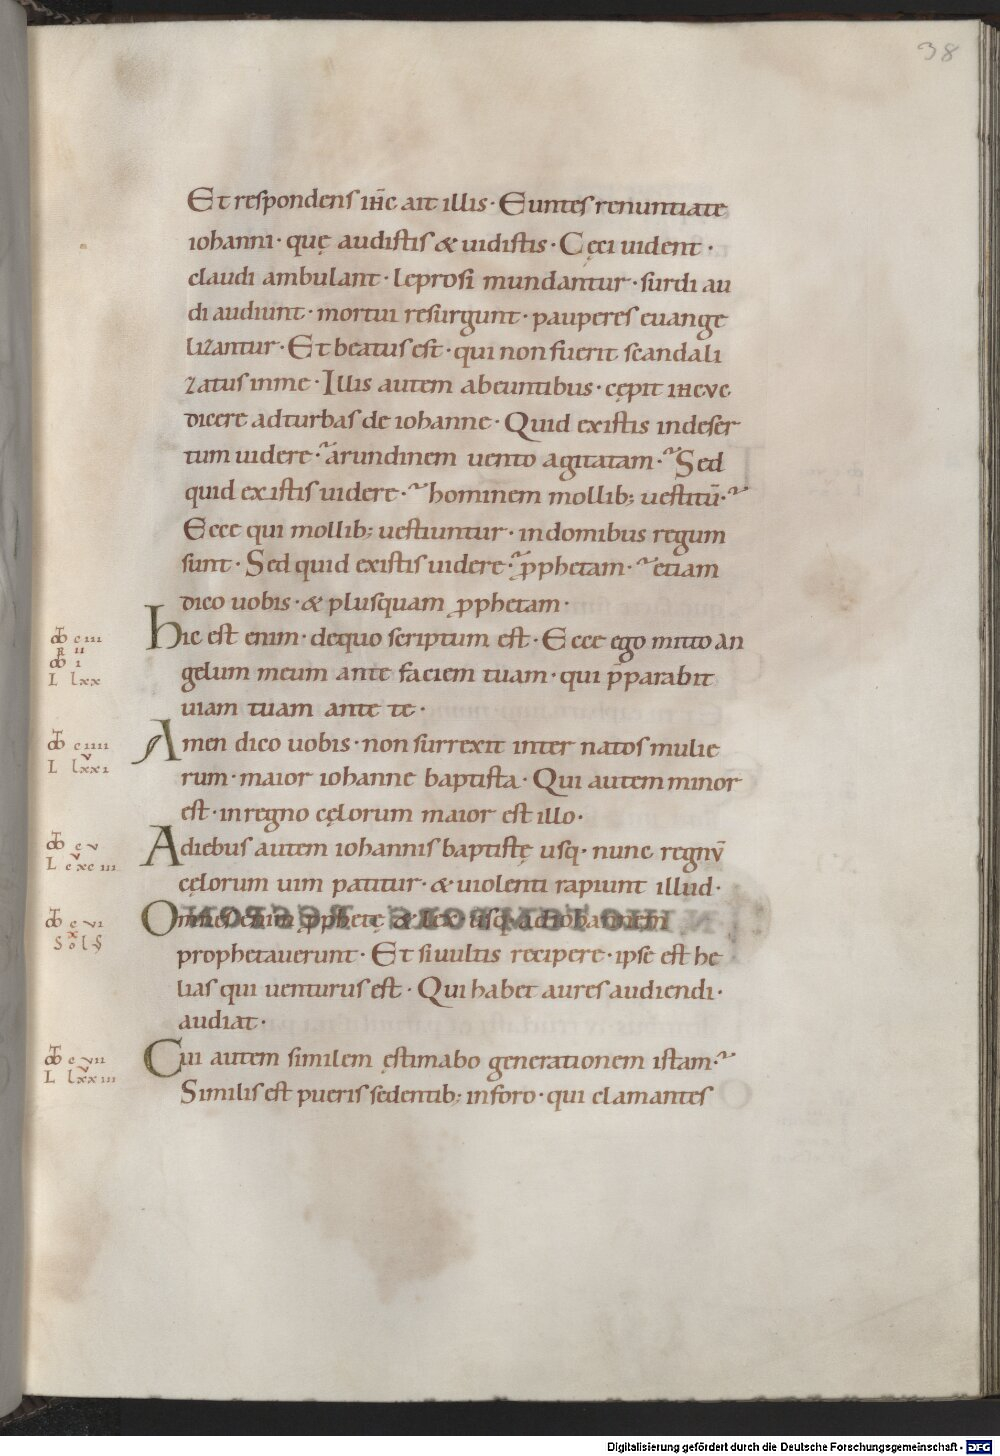 38
Et respondens ih̄c ait illis · Euntes renuntiate
iohanni · quę audistis & uidistis · Cęci uident ·
claudi ambulant · leprosi mundantur · surdi au
di audiunt · mortui resurgunt · pauperes euange
lizantur · Et beatus est · qui non fuerit scandali
zatus in me · Illis autem abeuntibus · cępit
dicere ad turbas de iohanne · Quid existis in deser
tum uidere · arundinem uento agitatam · Sed
quid existis uidere · hominem mollib; uestitū ·
Ecce qui mollib; uestiuntur · in domibus regum
sunt · Sed quid existis uidere · ꝓphetam · etiam
dico uobis · & plusquam ꝓphetam ·
hic est enim · de quo scriptum est · Ecce ego mitto an
gelum meum ante faciem tuam · qui p̄parabit
uiam tuam ante te ·
Amen dico uobis · non surrexit inter natos mulie
rum · maior iohanne baptista · Qui autem minor
est · in regno cęlorum maior est illo ·
Adiebus autem iohannis baptistę usq · nunc regnū
cęlorum uim patitur · & uiolenti rapiunt illud ·
Omnes enim ꝓphetę & lex · usq · ad iohannem
prophetauerunt · Et si uultis recipere · ipse est he
lias qui uenturus est · Qui habet aures audiendi ·
audiat ·
Cui autem similem ęstimabo generationem istam ·
Similis est pueris sedentib; in foro · qui clamantes
c iii
ii
i
L lxx
c iiii
L lxxi
c v
c vi
c vii
L lxxiii
Digitalisierung gefördert durch die Deutsche Forschungsgemeinschaft - DFG